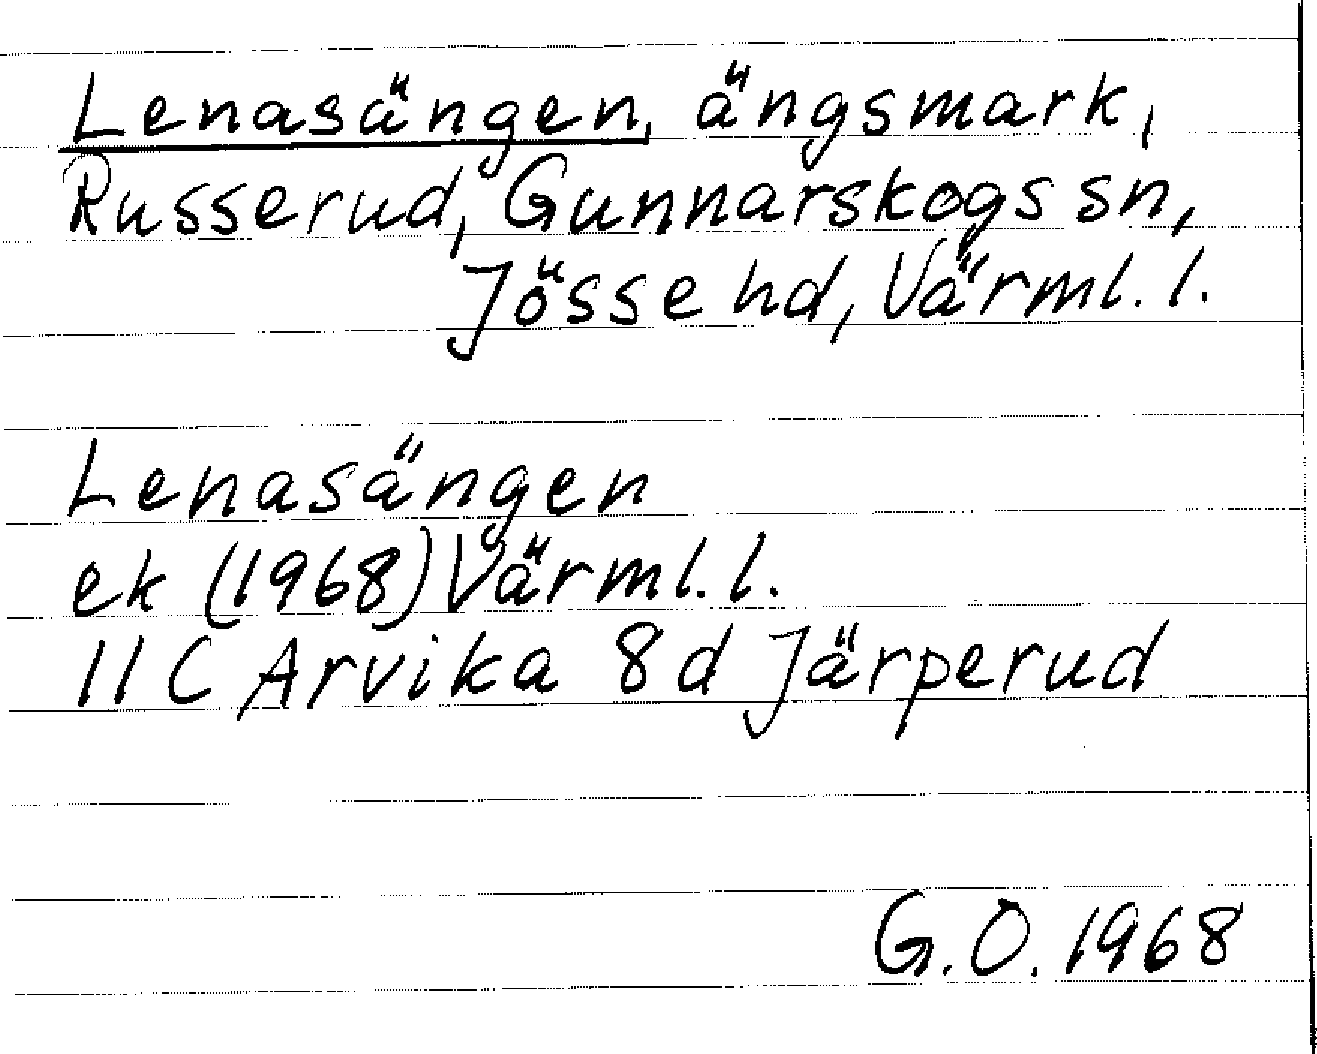 Lenasängen, ängsmark,
Russerud, Gunnarskogs sn,
Jösse hd, Värml. l.
Lenasängen
ek (1968) Värml. l.
11 C Arvika 8 d Järperud
G.O. 1968